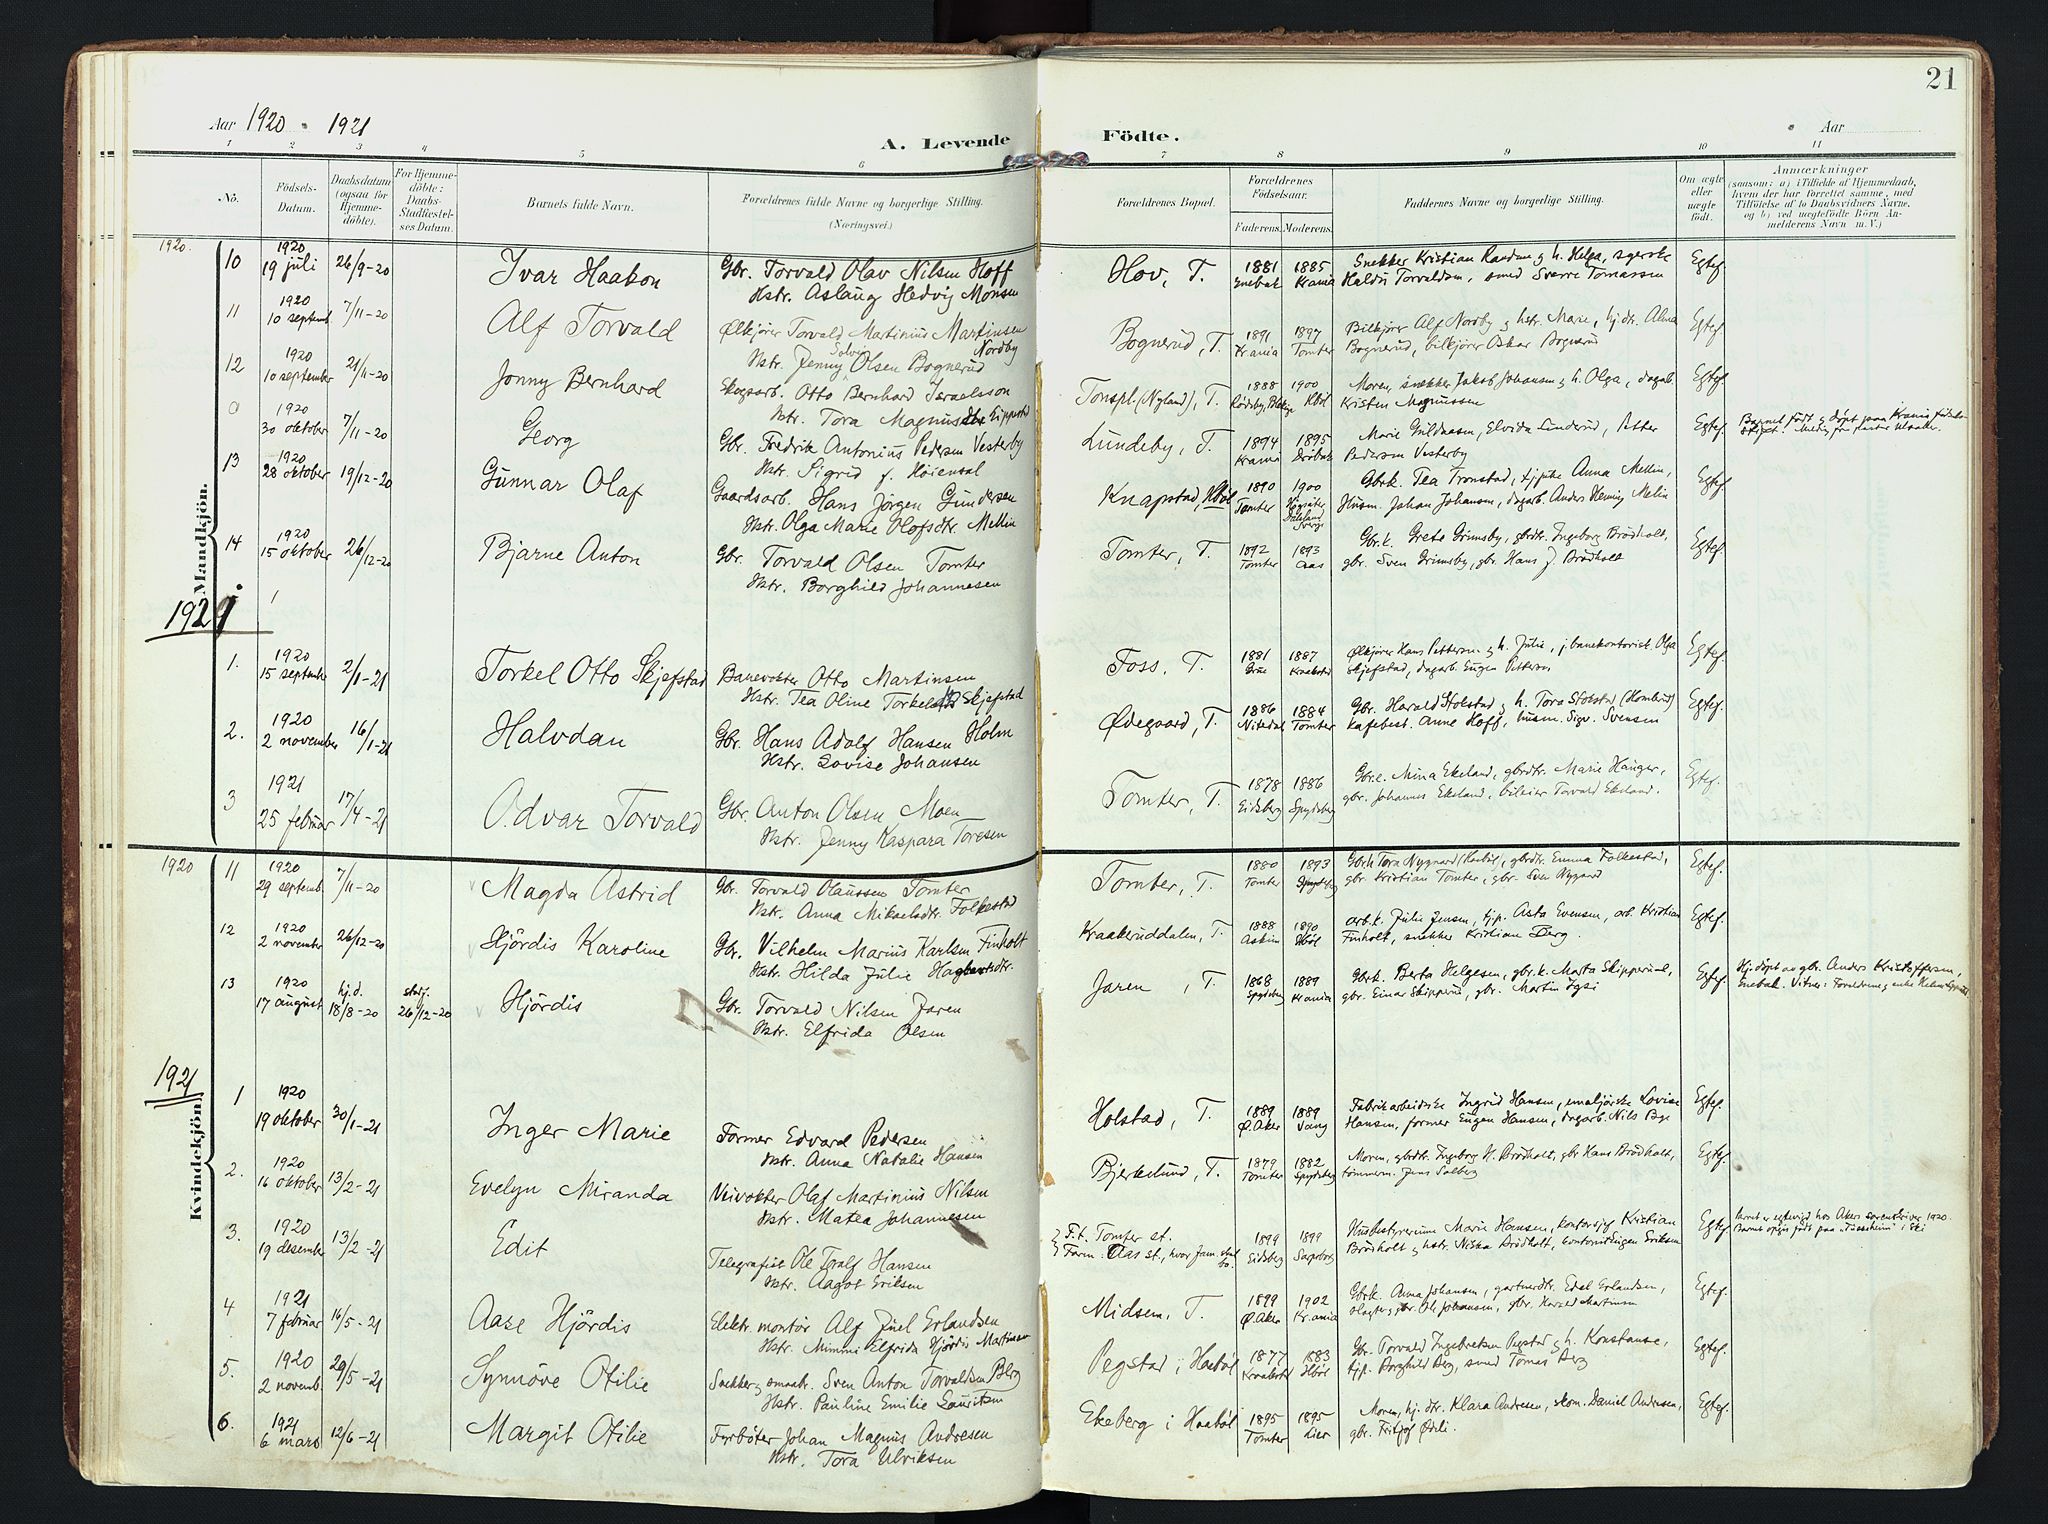 21
Aar 1920 - 1921
A. Levende Födte.
Aar
1 2 3 4 5 6 7 8 9 10 11
No.
Födsels-
Datum.
Daabsdatum
(ogsaa for
Hjemme-
döbte).
For Hjemme-
döbte:
Daabs-
Stadfæstel-
ses Datum.
Barnets fulde Navn.
Forældrenes fulde Navne og borgerlige Stilling.
(Næringsvei.)
Forældrenes Bopæl.
Forældrenes
Födselsaar.
Faderens. Moderens.
Faddernes Navne og borgerlige Stilling.
Om ægte
eller
uægte
födt.
Anmærkninger
(saasom: a) i Tilfælde af Hjemmedaab,
hvem der har forrettet samme, med
Tilföielse af to Daabsvidners Navne,
og b) ved uægtefödte Börn An-
melderens Navn m. V.)
Mandkjön.
1920.
10 1920 19 juli 26/9-20 Ivar Haakon
Gbr. Torvald Olav Nilsen Hoff
Hstr. Aslaug Hedvig Monsen
Hov, T. 1881 1885 Krania
Snekker Kristian
smed Sverre Tomassen
Egtef.
11 1920 10 septemb. 7/11-20 Alf Torvald
Ølkjører Torvald Martinius Martinsen Nordby
Hstr. Jenny Solvei Olsen Bognerud
Bognerud, T. 1891 Krania 1897 Tomter
Bilkjører Alf Nordby og hstr. Marie, hj. dtr. Alma
Bognerud, bilkjører Oskar Bognerud
Egtef.
12 1920 10 september 21/11-20 Jonny Bernhard
Skogsarb. Otto Bernhard Israelsson
Hstr. Tora
Tonspl. (Nyland), T. 1888 1900 Hböl
Moren, snekker Jakob Johansen og h. Olga, dagarb.
Kristen Magnussen
Egtef.
0 1920 30 oktober 7/11-20 Georg
Gbr. Fredrik Antonius Pedersen Vesterby
Hstr. Sigrid f. Høiensal
Lundeby, T. 1894 Krania 1895 Drøbak
Marie
Pedersen Vesterby
Egtef.
13 1920 28 oktober 19/12-20 Gunnar Olaf
Gaardsarb. Hans Jørgen Gundersen
Hstr. Olga Marie Olofsdtr. Mellin
Knapstad, Hböl 1890 Tomter 1900
Gbrk. Tea Tronstad, tjpike Anna Mellin,
Husm. Johan Johansen, dagarb. Anders Henning Melin
Egtef.
14 1920 15 oktober 26/12-20 Bjarne Anton
Gbr. Torvald Olsen Tomter
Hstr. Borghild Johannesen
Tomter, T. 1892 Tomter 1893 Aas
Gbr.k. Grete Grimsby, gbrdtr. Ingeborg Brødholt,
gbr. Sven Grimsby, gbr. Hans J. Brødholt
Egtef.
1921
1. 1920 15 september 2/1-21 Torkel Otto Skjefstad
Banevokter Otto Martinsen
Hstr. Tea Oline
Foss, T. 1881 1887 Kraakstad
Ølkjører Hans Pettersen og h. Julie, jbanekontorist Olga
Skjefstad, dagarb. Eugen Pettersen
Egtef.
2. 1920 2 november 16/1-21 Halvdan
Gbr. Hans Adolf Hansen Holm
Hstr. Lovise Johansen
Ødegaard, T. 1886 Nitedal 1884 Tomter
Gbr. Harald Stokstad og h. Tora Stokstad
kafebest. Anne Hoff, husm. Sigv. Svensen
Egtef.
3 1921 25 februar 17/4-21 Odvar Torvald
Gbr. Anton Olsen Moen
Hstr. Jenny Kaspara Toresen
Tomter, T. 1878 Eidsberg 1886 Spydeberg
Gbr.e. Mina Ekeland, gbrdtr. Marie Hanger,
gbr. Johannes Ekeland, bileier Torvald Ekeland.
Egtef.
Kvindekjön.
1920
11 1920 29 septemb. 7/11-20 Magda Astrid
Gbr. Torvald Olaussen Tomter
Hstr. Anna Mikaelsdtr. Folkestad
Tomter, T. 1880 Tomter 1893 Spydeberg
Tora Nygaard gbrdtr. Emma Folkestad,
gbr. Kristian Tomter, gbr. Sven Nygaard
Egtef.
12 1920 2 november 26/12-20 Hjördis Karoline
Gbr. Vilhelm Marius Karlsen Finholt
Hstr. Hilda Julie
Kraakeruddalen, T. 1888 Askim 1890 Hböl
arb.k. Julie Jensen, tjp. Asta Evensen, arb. Kristian
Finholt, snekker Kristian Berg.
Egtef.
13 1920 17 august hj.d. 18/8-20 stadf. 26/12-20 Hjördis
Gbr. Torvald Nilsen Jaren
Hstr. Elfrida Olsen
Jaren, T. 1868 Spydeberg 1889 Krania
Gbrk. Berta Helgesen, gbr.k. Marta Skipperud,
gbr. Einar Skipperud, gbr. Martin
Egtef. Hj.döpt av gbr. Anders Kristoffersen,
1921
1 1920 19 oktober 30/1-21 Inger Marie
Former Edvard Pedersen
Hstr. Anna Natalie Hansen
Holstad, T. 1889 Ø. Aker 1889
Fabrikarbeiderske Ingrid Hansen, Lovise
Hansen, former Eugen Hansen, dagarb. Nils Bye
Egtef.
2. 1920 16 oktober 13/2-21 Evelyn Miranda
Veivokter Olaf Martinius Nilsen
Hstr. Matea Johannesen
Bjerkelund, T. 1879 Tomter 1882 Spydeberg
Moren, gbrdtr. Ingeborg H. Brødholt, gbr. Hans Brødholt,
tömmerm. Jens Solberg
Egtef.
3. 1920 19 desember 13/2-21 Edit
Telegrafist Ole Tralf Hansen
Hstr. Aagot Eriksen
F.t. Tomter st.
Aas st., hvor 1899 Eidsberg 1899 Sarpsborg
Husbestyrerinne Marie Hansen, Kristian
Brödholt og hstr. Brødholt, Eriksen
Egtef.
4 1921 7 februar 16/5-21 Aase Hjördis
Elektr. montör Alf Juel Erlandsen
Hstr. Mimmi Elfrida Hjördis Martinsen
Midsem, T. 1899 Ø. Aker 1902 Kr.ania
Gbrk. Anna Johansen, gartnerdtr. Edel Erlandsen,
Egtef.
5. 1920 2 novemb. 29/5-21 Synnöve Otilie
Snekker og Sven Anton Torvaldsen Berg
Hstr. Pauline Emilie Lauritsen
Pegstad i Haaböl 1877 Kraakstad 1883 Hböl
Gbr. Torvald Ingebretsen Pegstad og h. Konstanse,
tjp. Borghild Berg, smed Tomas Berg
Egtef.
6. 1921 6 mars 12/6-21 Margit Otilie
Fyrböter Johan Magnus Andresen
Hstr. Tora Ulriksen
Ekeberg i Haaböl 1895 Tomter 1895 Lier
Moren, hj. dtr. Klara Andresen, skom. Daniel Andresen,
gbr. Fritjof
Egtef.